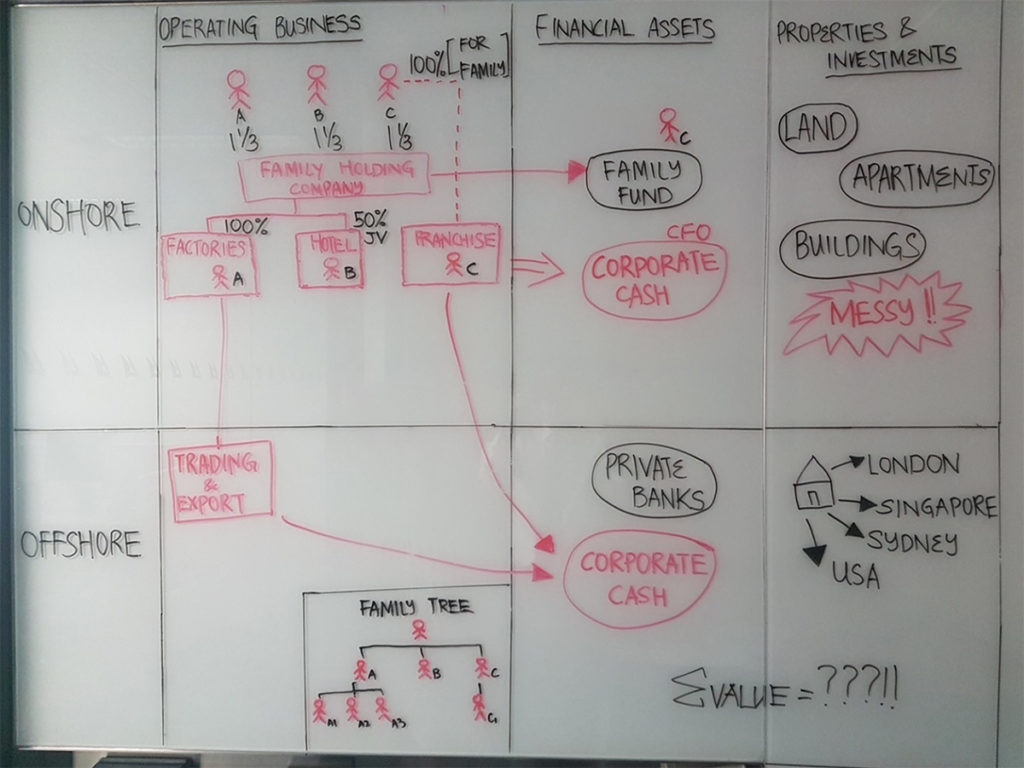 OPERATING BUSINESS
FINANCIAL ASSETS
PROPERTIES &
INVESTMENTS
100% [FOR
FAMILY]
A
B
C
1 1/3
1 1/3
1 1/3
FAMILY HOLDING
COMPANY
C
FAMILY
FUND
LAND
APARTMENTS
BUILDINGS
MESSY!!
ONSHORE
100%
50%
JV
FACTORIES
A
HOTEL
B
FRANCHISE
C
CFO
CORPORATE
CASH
OFFSHORE
TRADING
&
EXPORT
PRIVATE
BANKS
CORPORATE
CASH
LONDON
SINGAPORE
SYDNEY
USA
FAMILY TREE
A
B
C
A1
A2
A3
C1
ΣVALUE = ???!!